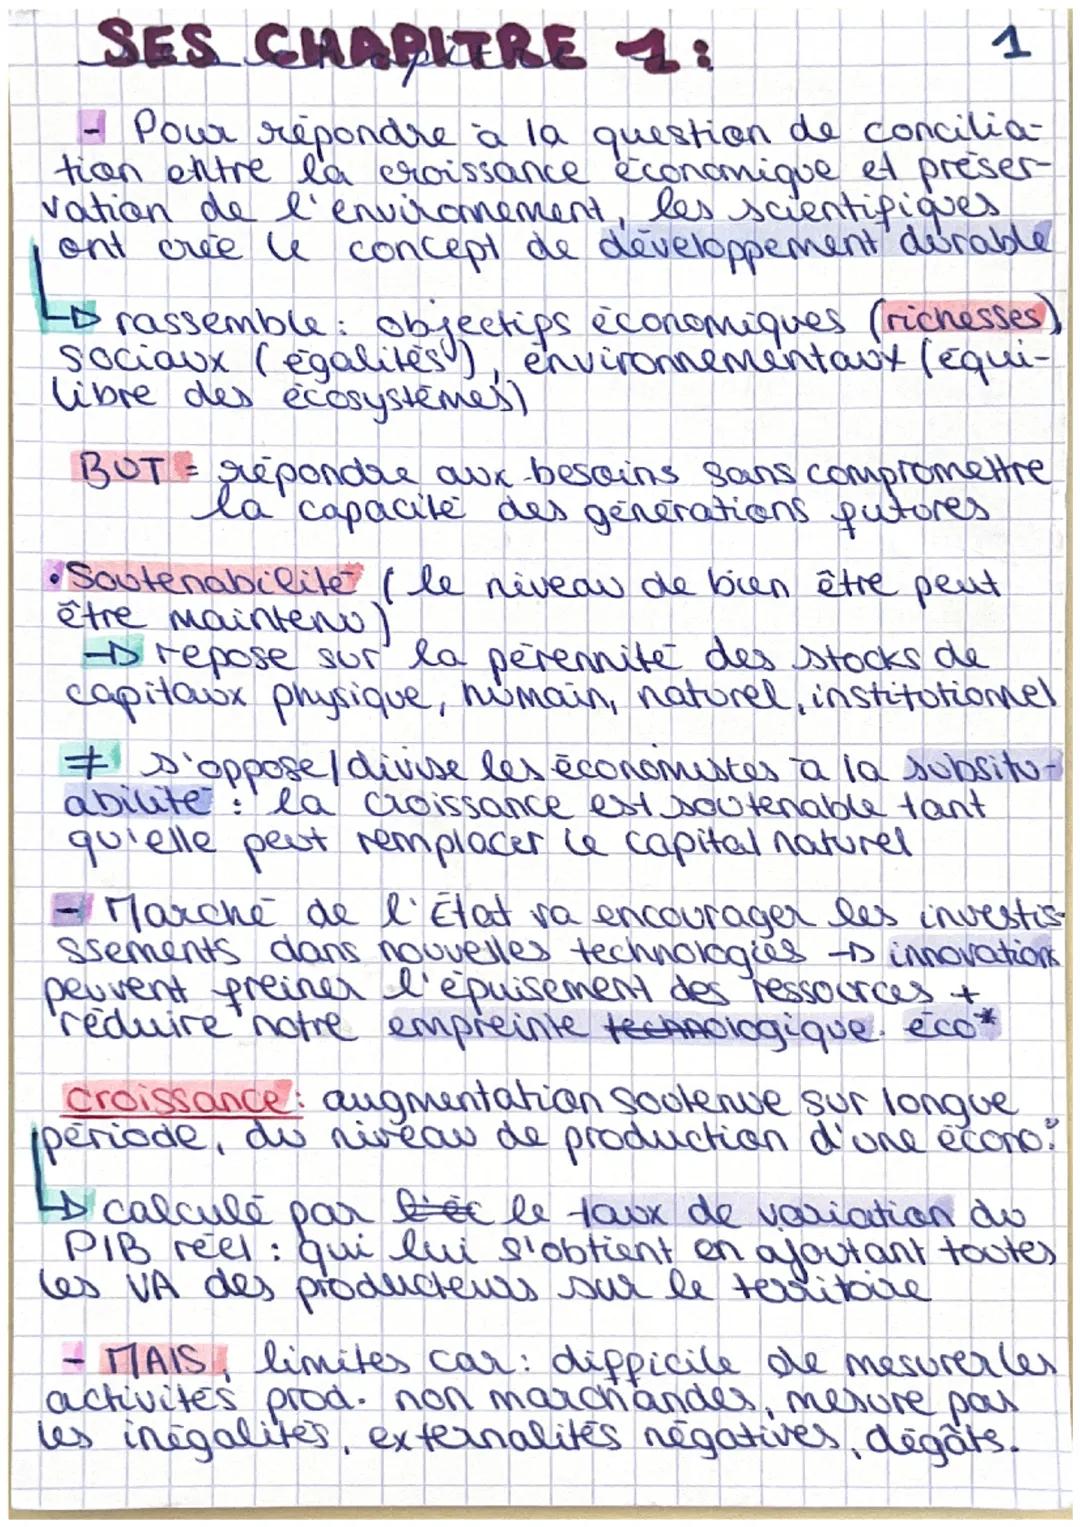 SES CHAPITRE 1:
1
- Pour répondre à la question de concilia-
tion entre la croissance économique et préser-
vation de l'environnement, les scientifiques
ont crée le concept de développement durable
↳ rassemble : objectifs économiques (richesses),
sociaux (égalités), environnementaux (équi-
libre des écosystèmes)
BUT = répondre aux besoins sans compromettre
la capacité des générations futures
• Soutenabilité (le niveau de bien être peut
être maintenu)
→ repose sur la pérennité des stocks de
capitaux physique, humain, naturel, institutionnel
≠ s'oppose/divise les économistes à la subsitu-
abilité : la croissance est soutenable tant
qu'elle peut remplacer le capital naturel
- Marché de l'État va encourager les investis-
ssements dans nouvelles technologies → innovations
peuvent freiner l'épuisement des ressources +
réduire notre empreinte technologique. éco*
croissance : augmentation soutenue sur longue
période, du niveau de production d'une écono°
↳ calculé par l'éc le taux de variation du
PIB réel : qui lui s'obtient en ajoutant toutes
les VA des producteurs sur le territoire
- MAIS, limites car : difficile de mesurer les
activités prod. non marchandes, mesure pas
les inégalités, externalités négatives, dégâts.